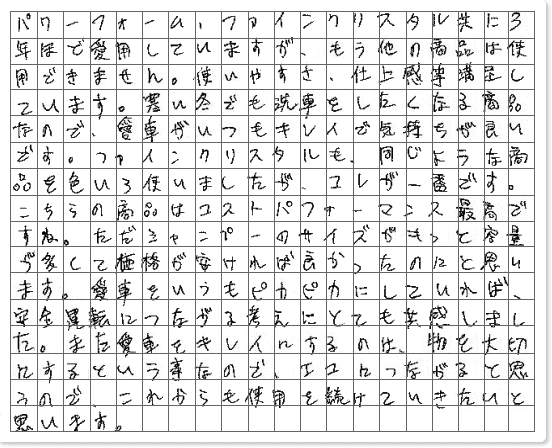 パワーフォーム、ファインクリスタル共に3
年ほど愛用していますが、もう他の商品は使
用できません。使いやすさ、仕上感等満足し
ています。寒い冬でも洗車をしたくなる商品
なので、愛車がいつもキレイで気持ちが良い
です。ファインクリスタルも、同じような商
品を色いろ使いましたが、コレが一番です。
こちらの商品はコストパフォーマンス最高で
すね。ただシャンプーのサイズがもっと容量
が多くて価格が安ければ良かったのにと思い
ます。愛車をいつもピカピカにしていれば、
安全運転につながる考えにとても共感しまし
た。また愛車をキレイにするのは、物を大切
にするという事なので、エコにつながると思
うので、これからも使用を続けていきたいと
思います。